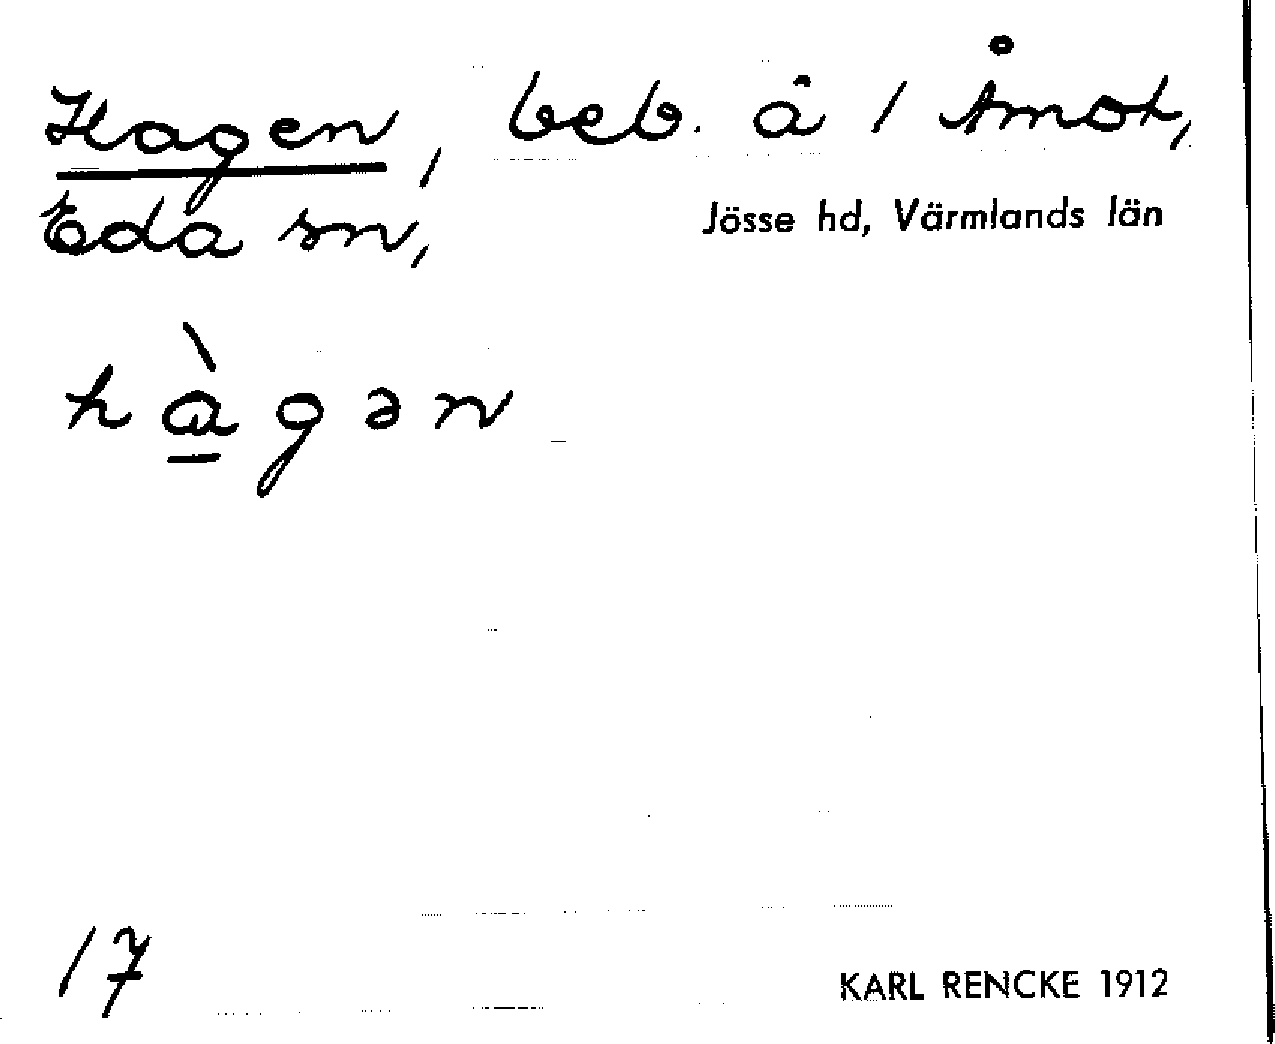 Hagen, beb. å 1 Åmot,
Eda sn,
Jösse hd, Värmlands län
hà̱gən
17
KARL RENCKE 1912